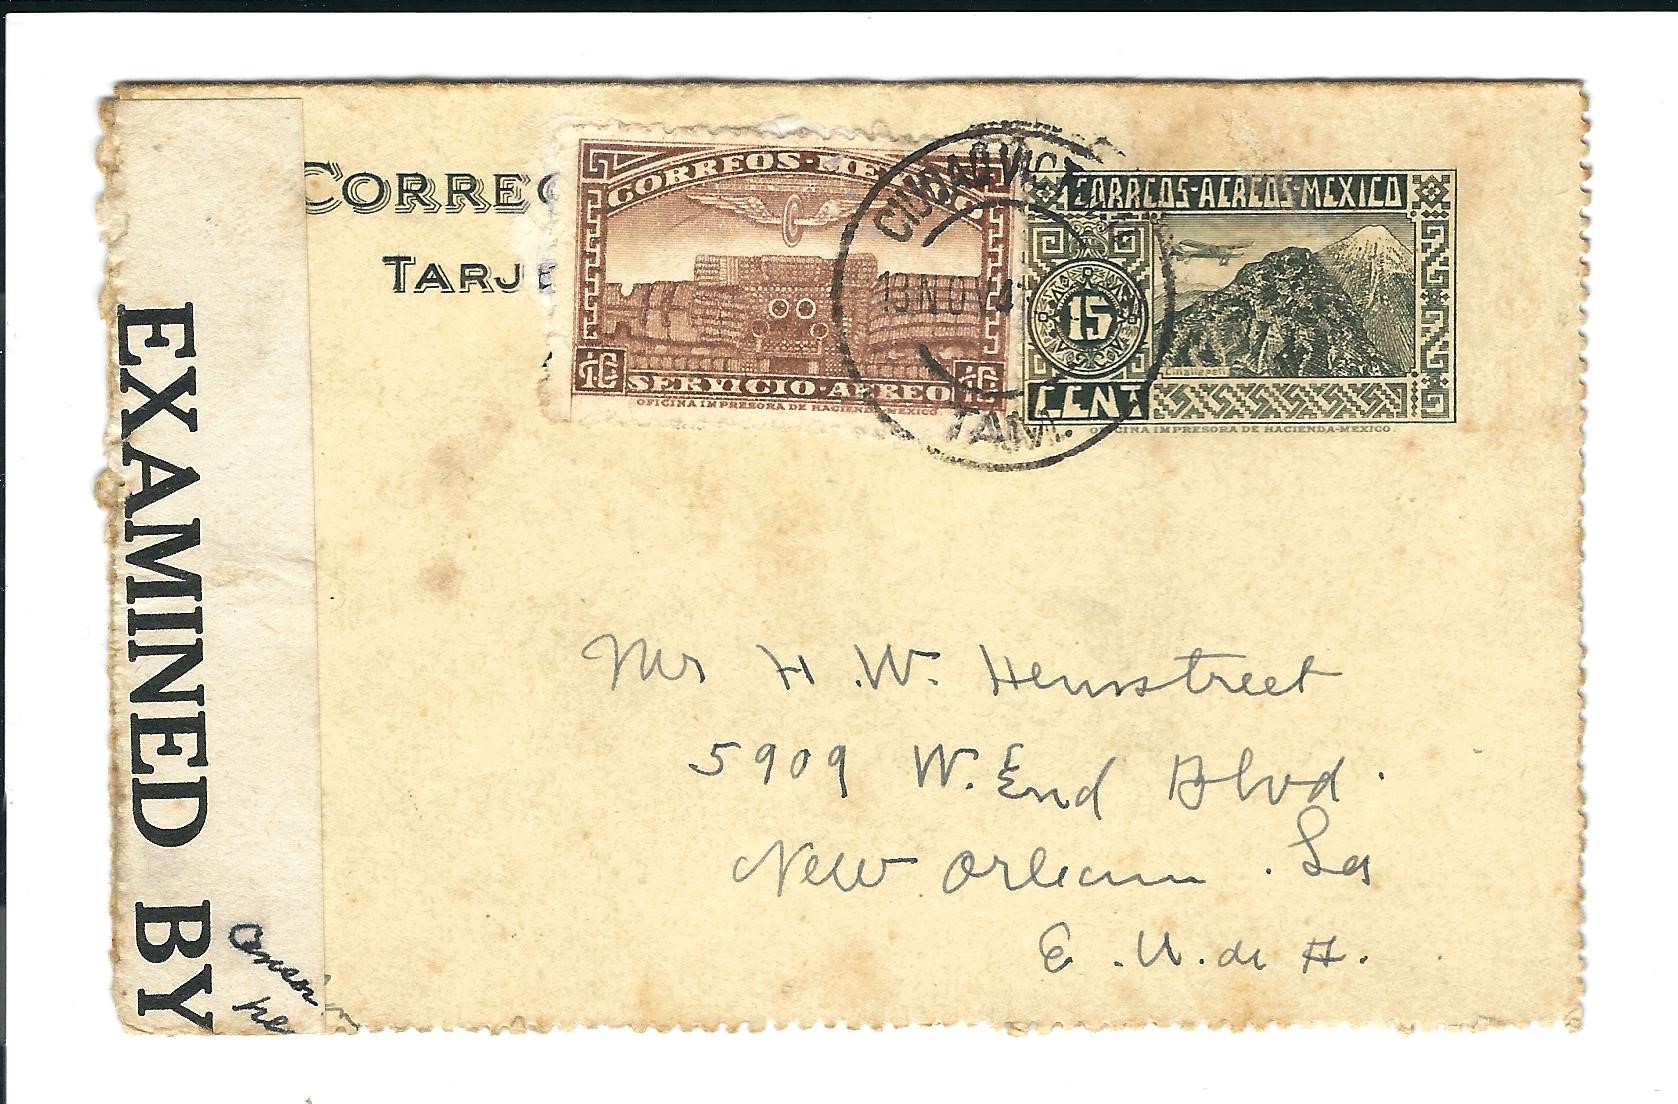 CORREO
TARJE
CORREOS-MEXICO
SERVICIO-AEREO
OFICINA IMPRESORA DE HACIENDA-MEXICO
CIUDAD VICT
13 NOV
TAM.
CORREOS-AEREOS-MEXICO
15
CENT
OFICINA IMPRESORA DE HACIENDA-MEXICO.
EXAMINED BY
Censor
Mr H.W. Hemstreet
5909 W. End Blvd.
New Orleans. La
E.U. de A.